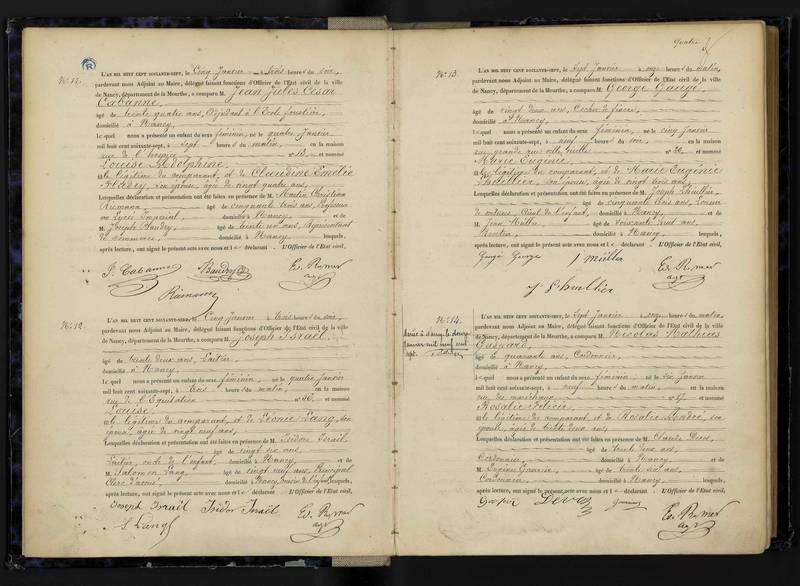 Quatre
N.° 11.
L'AN MIL HUIT CENT SOIXANTE-SEPT, le Cinq Janvier à trois heures du soir,
pardevant nous Adjoint au Maire, délégué faisant fonctions d'Officier de l'Etat civil de la ville
de Nancy, département de la Meurthe, a comparu M. Jean Jules César
Cabanne,
âgé de trente quatre ans, à l'Ecole forestière,
domicilié à Nancy,
lequel nous a présenté un enfant du sexe féminin, né le quatre Janvier
mil huit cent soixante-sept, à sept heures du matin, en la maison
rue de l'hospice n° 13, et nommé
Louise Adolphine
fille légitime du comparant, et de Claudine Emélie
son épouse, âgée de vingt quatre ans,
Lesquelles déclaration et présentation ont été faites en présence de M. Christian
Riemann, âgé de cinquante trois ans, Professeur
au Lycée Impérial, domicilié à Nancy, et de
M. Joseph Baudry, âgé de trente un ans, Représentant
de Commerce, domicilié à Nancy, lesquels,
après lecture, ont signé le présent acte avec nous et le déclarant. L'Officier de l'Etat civil,
J. Cabanne Baudry
Riemann
N.° 12.
L'AN MIL HUIT CENT SOIXANTE-SEPT, le Cinq Janvier à trois heures du soir,
pardevant nous Adjoint au Maire, délégué faisant fonctions d'Officier de l'Etat civil de la ville
de Nancy, département de la Meurthe, a comparu M. Joseph Israël,
âgé de trente deux ans, Laitier,
domicilié à Nancy,
lequel nous a présenté un enfant du sexe féminin, né le quatre Janvier
mil huit cent soixante-sept, à trois heures du matin, en la maison
rue de l'Equitation n° 30, et nommé
Louise,
fille légitime du comparant, et de Léonie Lang, son
épouse, âgée de vingt neuf ans,
Lesquelles déclaration et présentation ont été faites en présence de M. Isidor Israël,
âgé de vingt six ans,
Laitier, oncle de l'enfant, domicilié à Nancy, et de
M. Salomon Lang, âgé de vingt neuf ans, Principal
Clerc d'avoué, domicilié à Nancy, lesquels,
après lecture, ont signé le présent acte avec nous et le déclarant. L'Officier de l'Etat civil,
Joseph Israël Isidor Israël
S. Lang
N.° 13.
L'AN MIL HUIT CENT SOIXANTE-SEPT, le Sept Janvier à onze heures du matin,
pardevant nous Adjoint au Maire, délégué faisant fonctions d'Officier de l'Etat civil de la ville
de Nancy, département de la Meurthe, a comparu M. George Gaugé,
âgé de vingt deux ans, Cocher de fiacre,
domicilié à Nancy,
lequel nous a présenté un enfant du sexe féminin, né le cinq Janvier
mil huit cent soixante-sept, à neuf heures du soir, en la maison
rue grande rue ville vieille n° 30, et nommé
Marie Eugénie,
fille légitime du comparant, et de Marie Eugénie
Lhuillier, son épouse, âgée de vingt trois ans,
Lesquelles déclaration et présentation ont été faites en présence de M. Joseph Lhuillier,
âgé de cinquante trois ans, Loueur
de voitures, Aïeul de l'enfant, domicilié à Nancy, et de
M. Jean Müller, âgé de soixante huit ans,
Rentier, domicilié à Nancy, lesquels,
après lecture, ont signé le présent acte avec nous et le déclarant. L'Officier de l'Etat civil,
J müller
J Lhuillier
N.° 14.
L'AN MIL HUIT CENT SOIXANTE-SEPT, le Sept Janvier à onze heures du matin,
pardevant nous Adjoint au Maire, délégué faisant fonctions d'Officier de l'Etat civil de la ville
de Nancy, département de la Meurthe, a comparu M. Nicolas Mathias
Gaspard,
âgé de quarante ans, Cordonnier,
domicilié à Nancy,
lequel nous a présenté un enfant du sexe féminin, né le six Janvier
mil huit cent soixante-sept, à neuf heures du matin, en la maison
rue des maréchaux n° 27, et nommé
Rosalie Félicie,
fille légitime du comparant, et de Rosalie André, son
épouse, âgée de trente deux ans,
Lesquelles déclaration et présentation ont été faites en présence de M. Claude
âgé de trente deux ans,
Cordonnier, domicilié à Nancy, et de
M. âgé de trente six ans,
Cordonnier, domicilié à Nancy, lesquels,
après lecture, ont signé le présent acte avec nous et le déclarant. L'Officier de l'Etat civil,